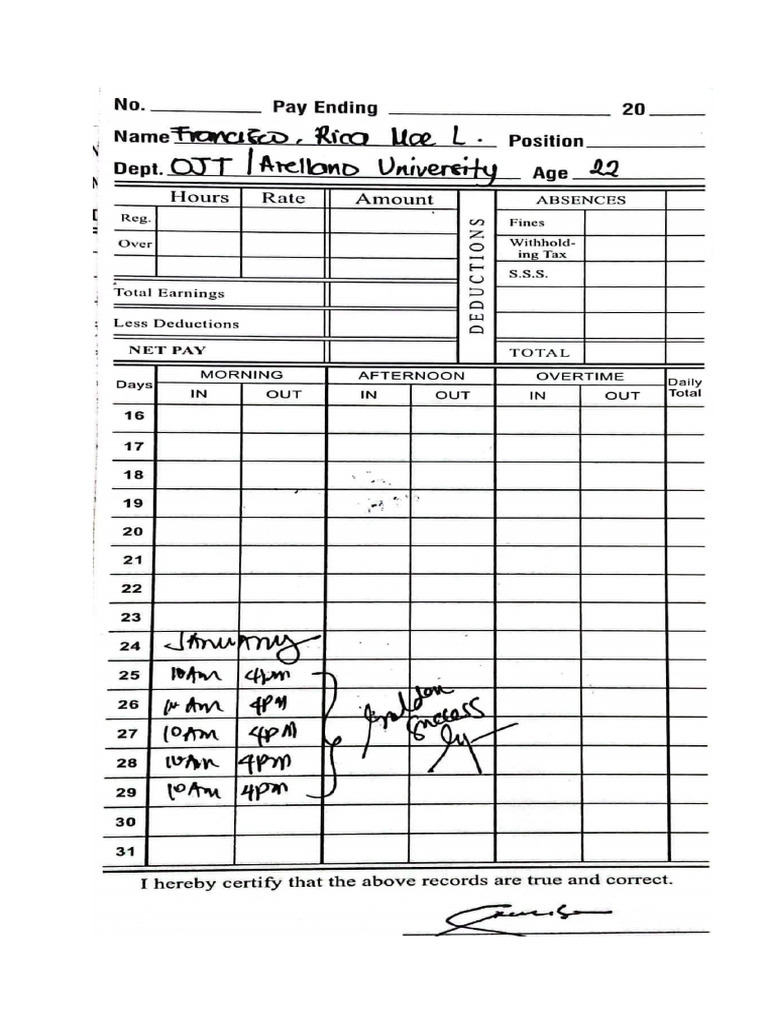 No. Pay Ending 20
Name Francisco, Rica Mae L. Position
Dept. OJT / Arellano University Age 22
Hours Rate Amount DEDUCTIONS ABSENCES
Reg. Fines
Over Withhold-
ing Tax
S.S.S.
Total Earnings
Less Deductions
NET PAY TOTAL
Days MORNING AFTERNOON OVERTIME Daily
IN OUT IN OUT IN OUT Total
16
17
18
19
20
21
22
23
24 January
25 10AM 4pm
26 10AM 4PM Golden
27 10AM 4PM Success
28 10AM 4pm
29 10AM 4pm
30
31
I hereby certify that the above records are true and correct.